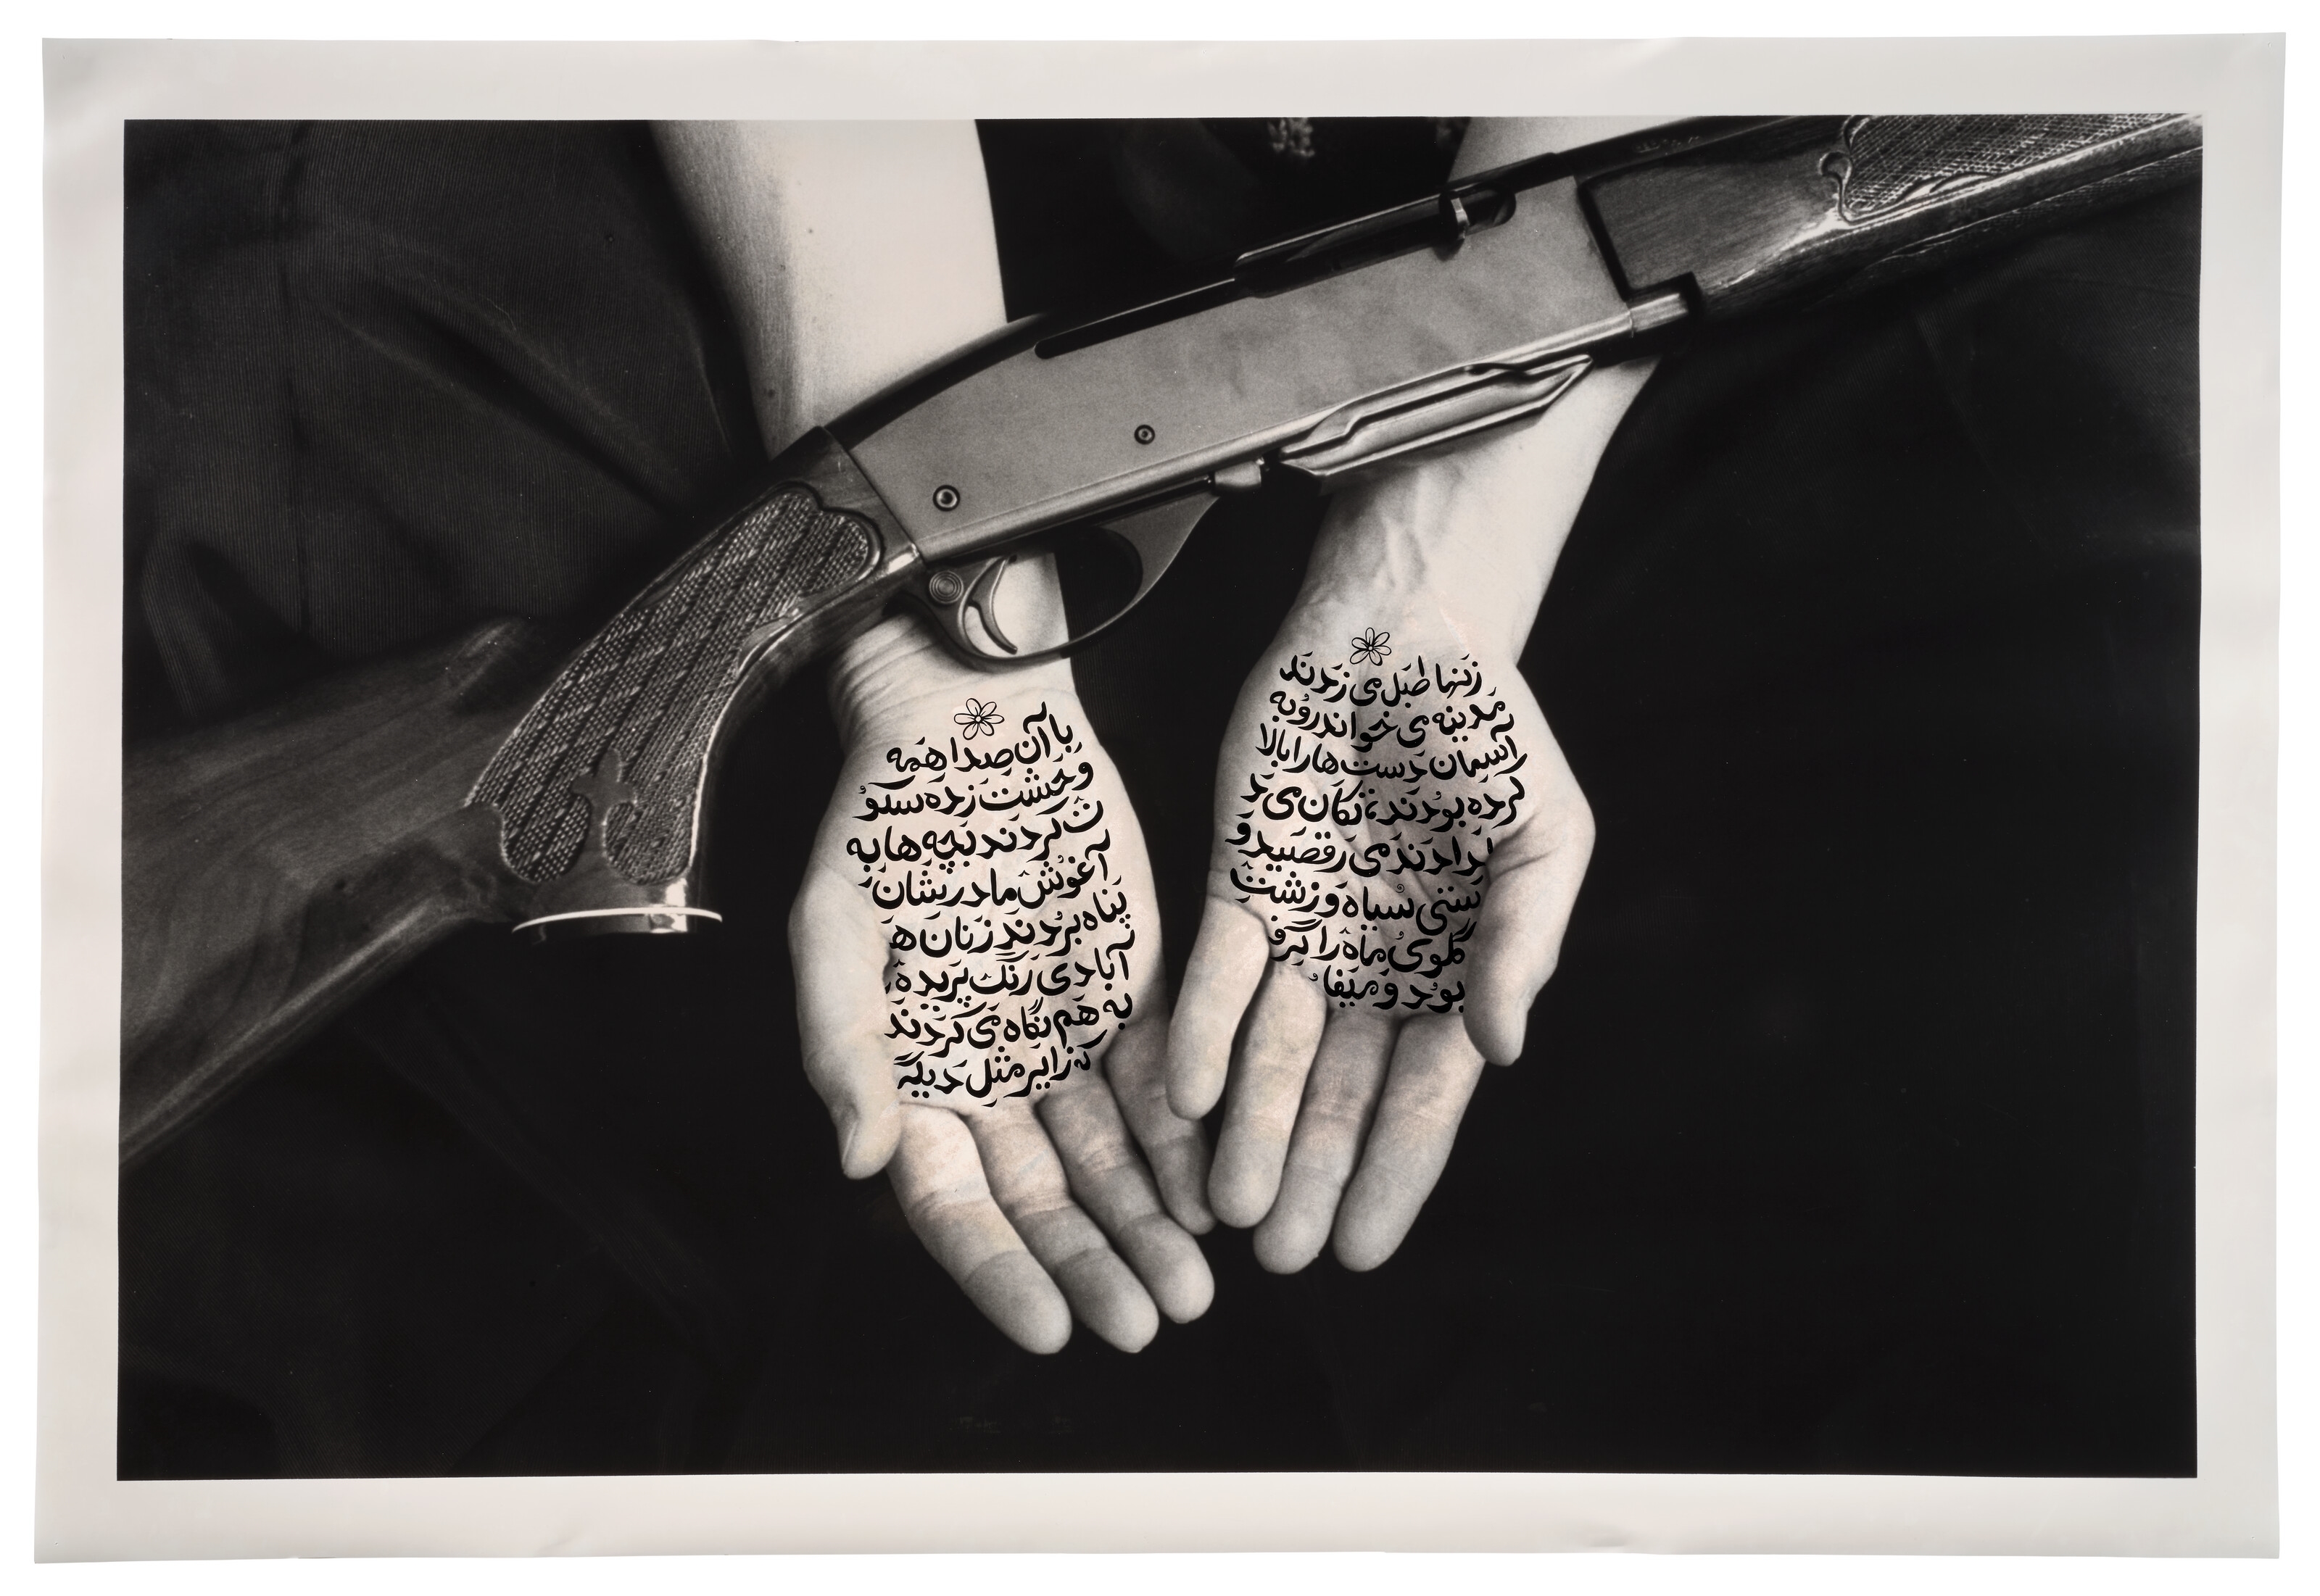 زنها طبل می زدند
مدینه می خواند رو به
آسمان دست ها را بالا
کرده بودند، تکان می د
می رقصید و
سیاه و زشت
گلوی ماه را گرف
بود و میفا
با آن صدا همه
وحشت زده سکو
ت کردند بچه ها به
آغوش مادرشان
پناه بردند زنان ه
آبادی رنگ پریده
به هم نگاه می کردند
که زایر مثل دیگه